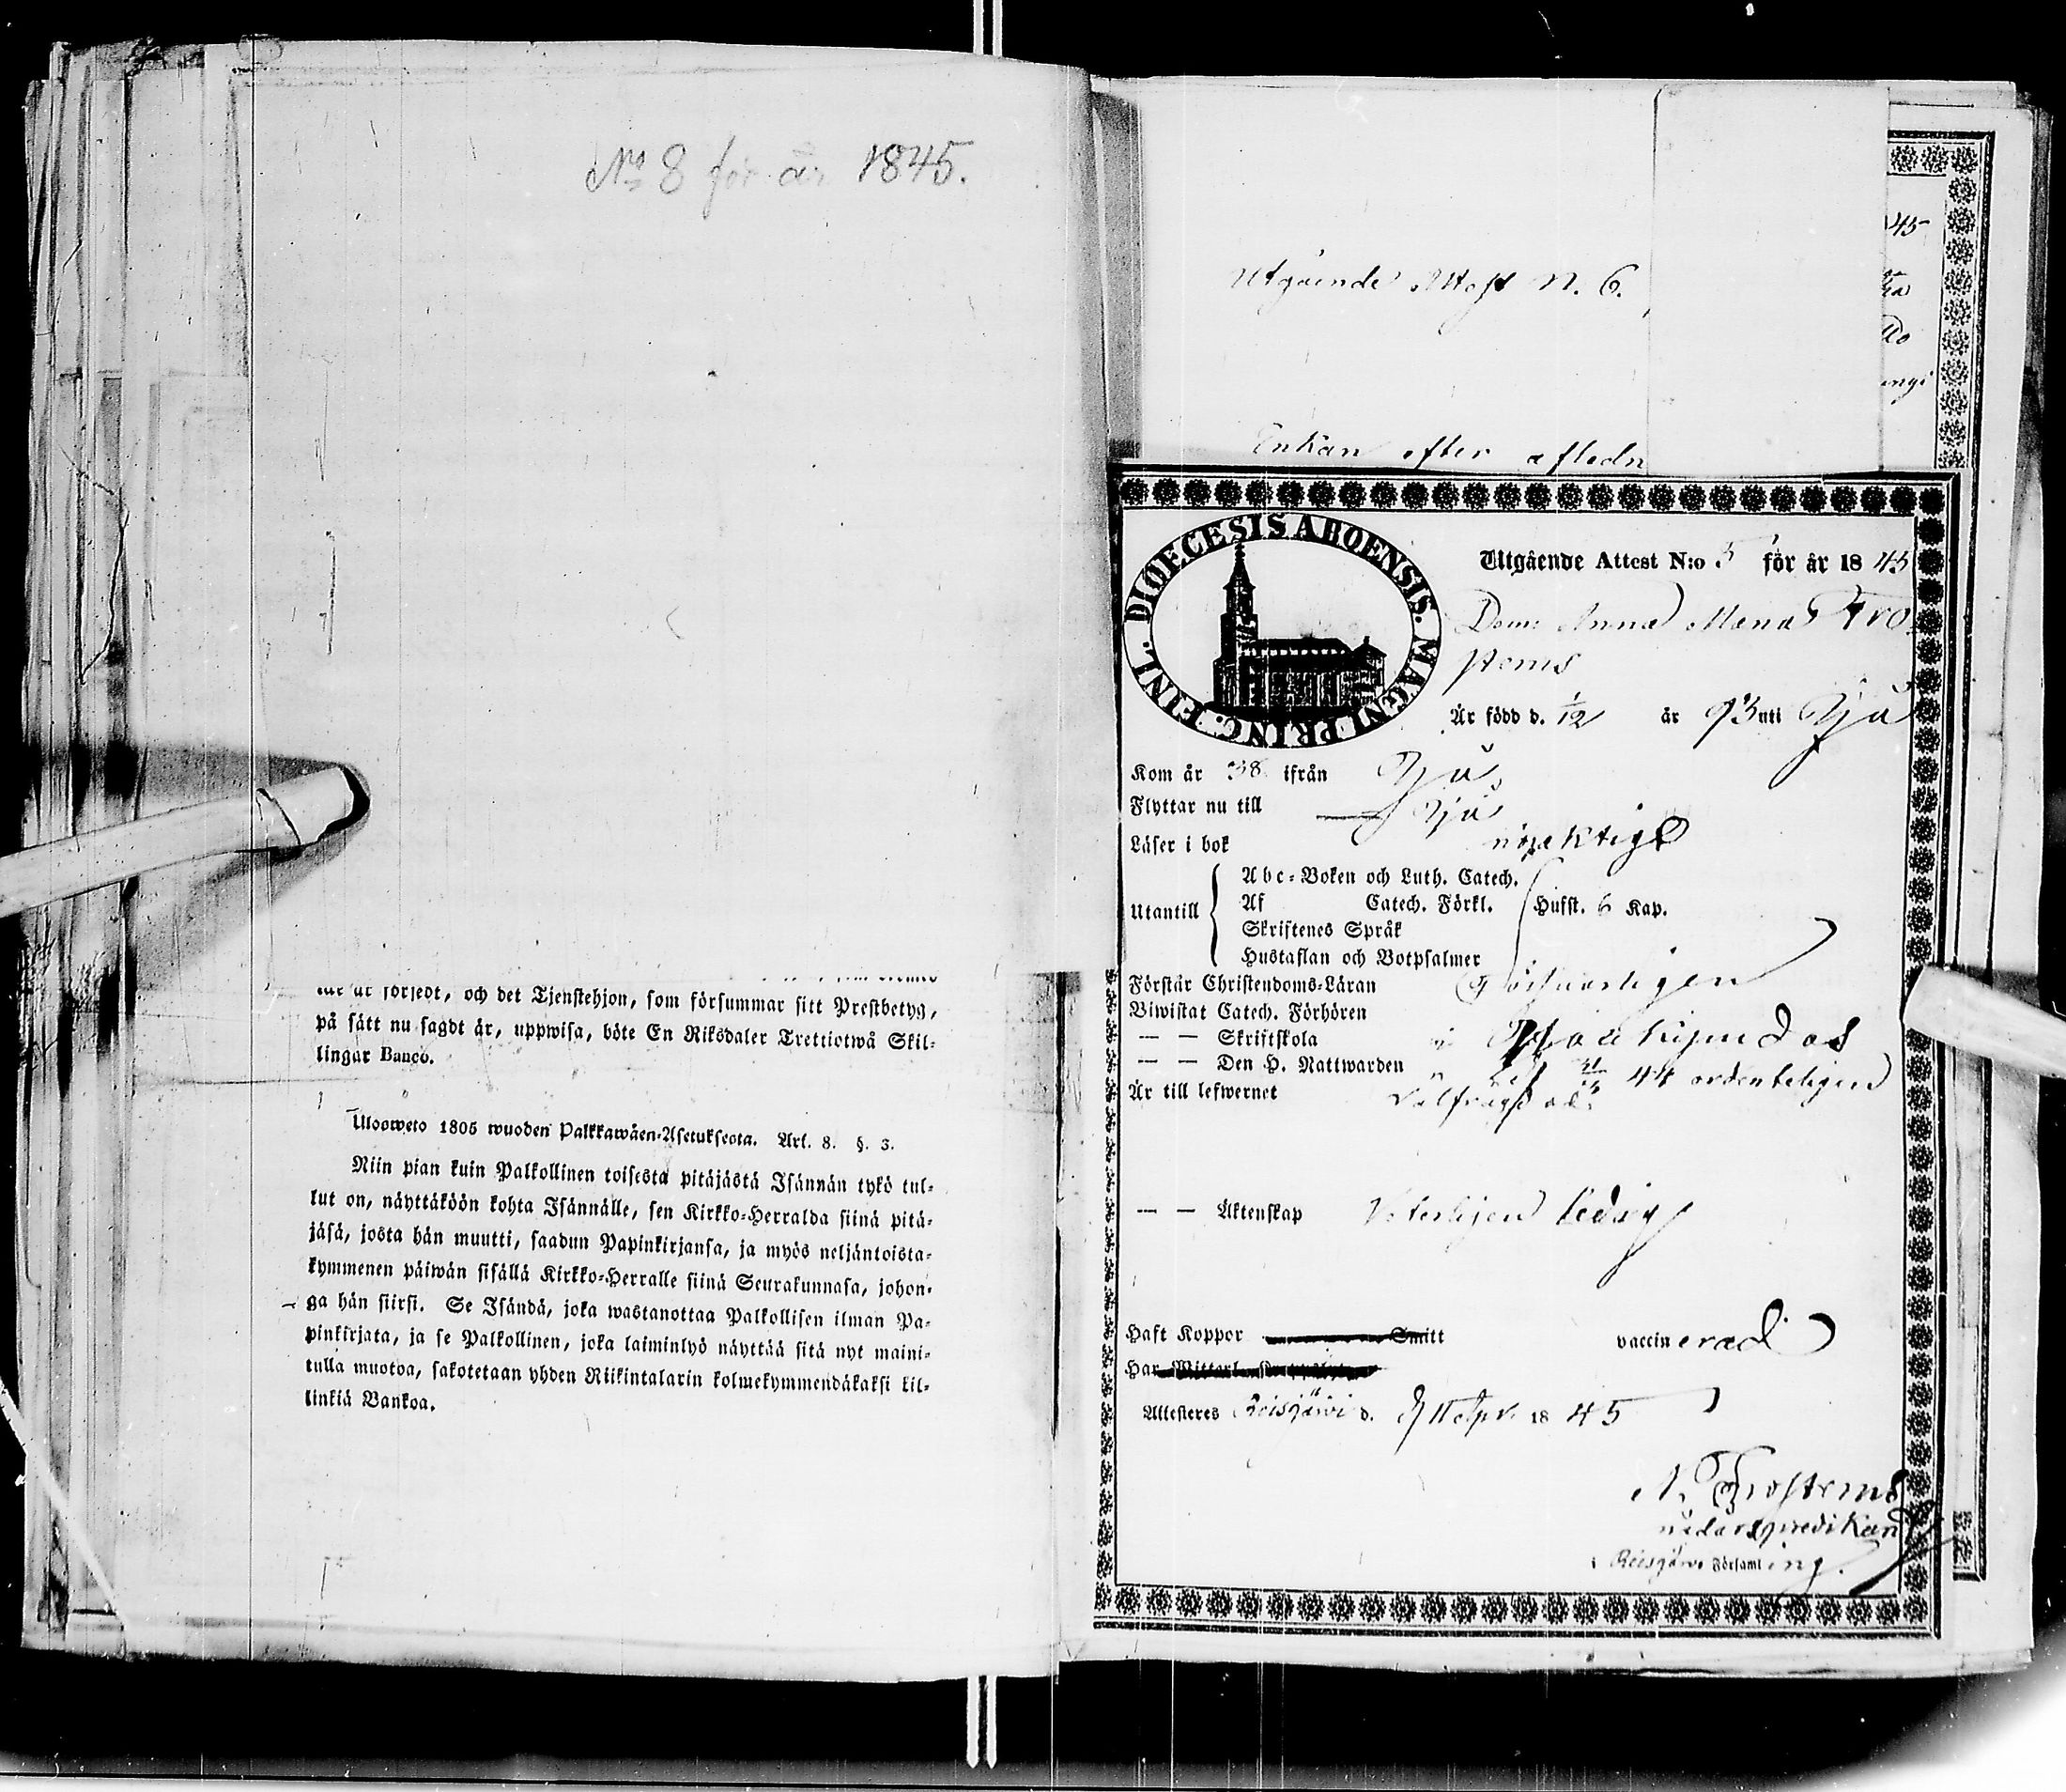 No 8 för år 1845.
får är förledt, och det Tjenstehjon, som försummar sitt Prestbetyg,
på sätt nu sagdt är, uppwisa, böte En Riksdaler Trettiotwå Skil-
lingar Banco.
Uloosweto 1805 wuoden Palkkawäen-Asetukseota. Art. 8. §. 3.
Niin pian kuin Palkollinen toisesta pitäjästä Isännän tykö tul-
lut on, näyttäköön kohta Isännälle, sen Kirkko-Herralda siinä pitä-
jäsä, josta hän muutti, saadun Papinkirjansa, ja myös neljäntoista-
kymmenen päiwän sisällä Kirkko-Herralle siinä Seurakunnasa, johon-
ga hän siirsi. Se Isändä, joka wastanottaa Palkollisen ilman Pa-
pinkirjata, ja se Palkollinen, joka laiminlyö näyttää sitä nyt maini-
tulla muotoa, sakotetaan yhden Riikintalarin kolmekymmendäkaksi kil-
linkiä Bankoa.
Utgående Attest N. 6.
Enkan efter afledn
45
DIOECESIS ABOENSIS. MAGNI PRINC. FINL.
Utgående Attest N:o 5 för år 1845
Dem: Anna Maria Fro-
sterus
Är född d. 1/12 år 93 uti
Kom år 38 ifrån
Flyttar nu till
Läser i bok nöjaktigt
Utantill
Abc-Boken och Luth. Catech.
Af Catech. Förkl. Husst. 6 Kap.
Skriftenes Språk
Hustaflan och Botpsalmer
Förstår Christendoms-Läran försvarligen
Biwistat Catech. Förhören
— — Skriftskola
— — Den H. Nattwarden 44 ordenteligen
Är till lefwernet välfräjdad
— — Äktenskap Veterligen ledig
Haft Koppor Smitt vaccinerad
Har
Attesteres Reisjärvi d. 11 Apr. 1845
N. Frosterus
i Reisjärvi Församling.